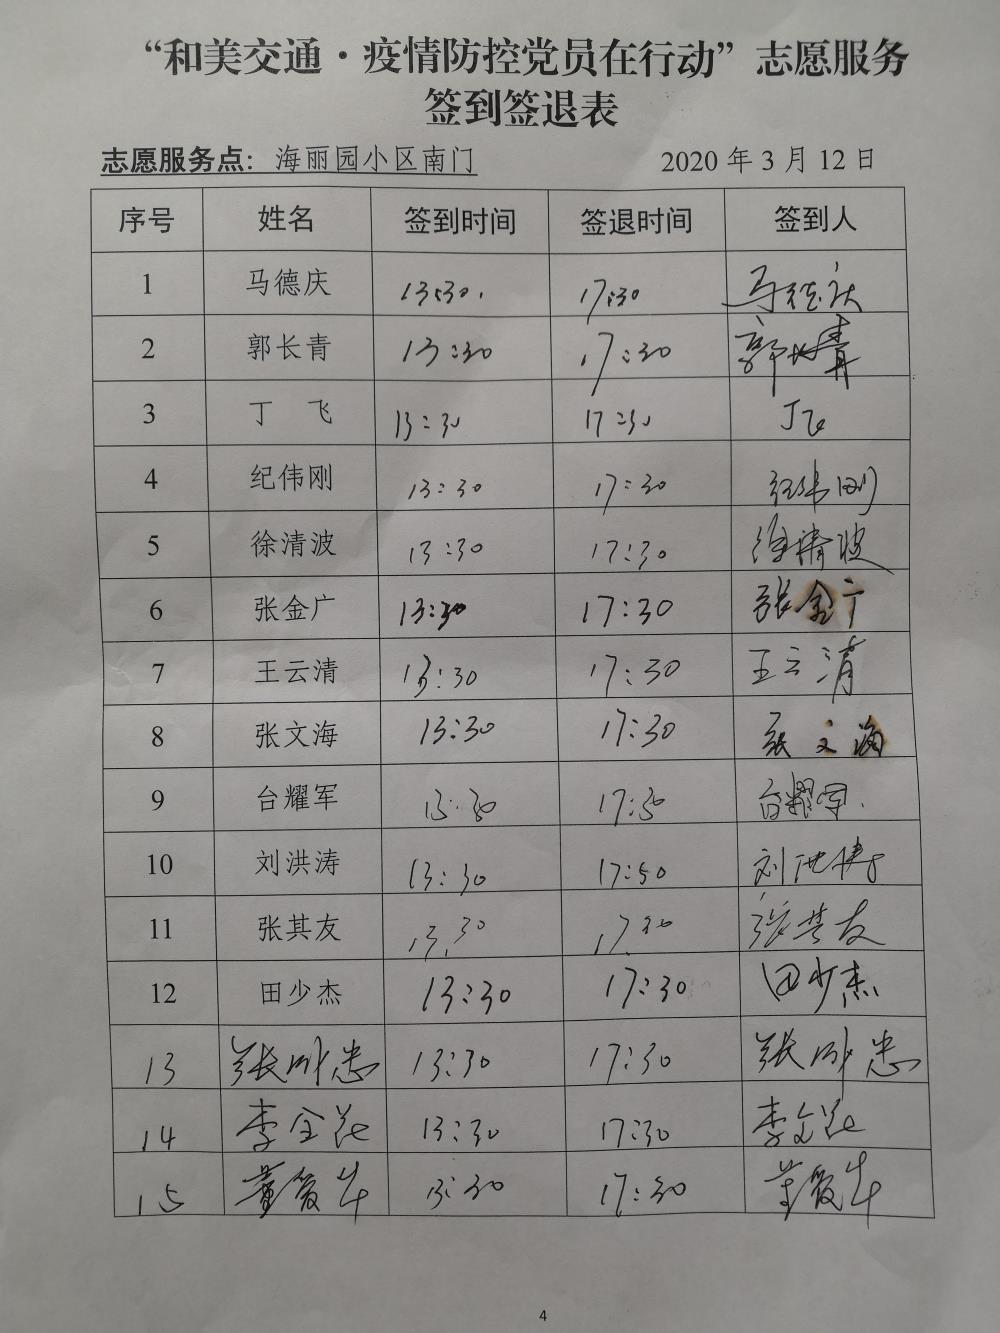 “和美交通·疫情防控党员在行动”志愿服务
签到签退表
志愿服务点：海丽园小区南门 2020 年 3 月 12 日
序号 姓名 签到时间 签退时间 签到人
1 马德庆 13:30. 17:30 马德庆
2 郭长青 13:30 17:30 郭长青
3 丁 飞 13:30 17:30 丁飞
4 纪伟刚 13:30 17:30 纪伟刚
5 徐清波 13:30 17:30 徐清波
6 张金广 13:30 17:30 张金广
7 王云清 13:30 17:30 王云清
8 张文海 13:30 17:30 张文海
9 台耀军 13:30 17:30 台耀军.
10 刘洪涛 13:30 17:50 刘洪涛
11 张其友 13.30 17 30 张其友
12 田少杰 13:30 17:30 田少杰
13 13:30 17:30
14 13:30 17:30
15 13:30 17:30
4